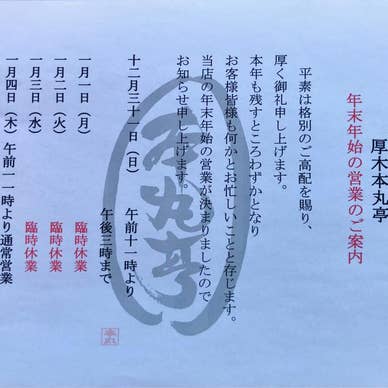 厚木本丸亭
年末年始の営業のご案内
平素は格別のご高配を賜り、
厚く御礼申し上げます。
本年も残すところわずかとなり
お客様皆様も何かとお忙しいことと存じます。
当店の年末年始の営業が決まりましたので
お知らせ申し上げます。
十二月三十一日（日） 午前十一時より
午後三時まで
一月一日（月） 臨時休業
一月二日（火） 臨時休業
一月三日（水） 臨時休業
一月四日（木） 午前一一時より通常営業
本丸亭